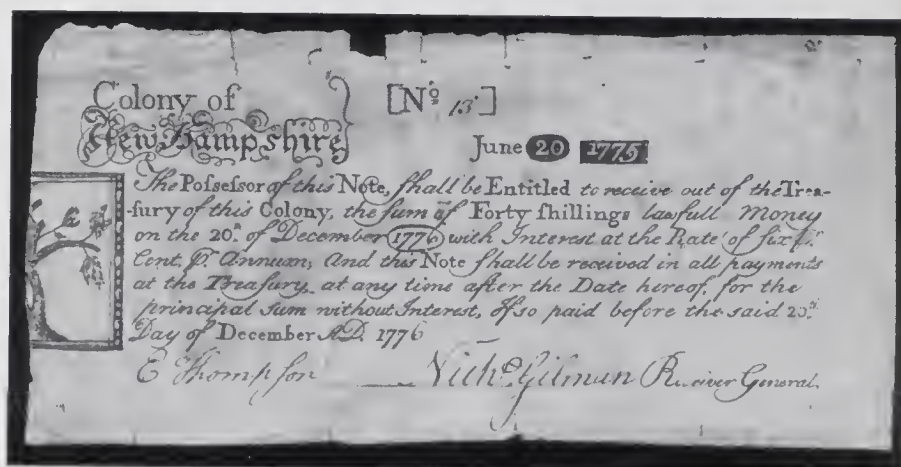 Colony of
New Hampshire
[No 13]
June 20 1775
The Poſseſsor of this Note, ſhall be Entitled to receive out of the Trea-
-ſury of this Colony, the ſum of Forty ſhillings lawfull Money
on the 20th of December 1776 with Interest at the Rate of six Pr
Cent. Pr. Annum; And this Note ſhall be received in all payments
at the Treaſury, at any time after the Date hereof, for the
principal Sum without Interest, If so paid before the said 20th
Day of December A.D. 1776
E Thompſon Nichs Gilman Receiver General.